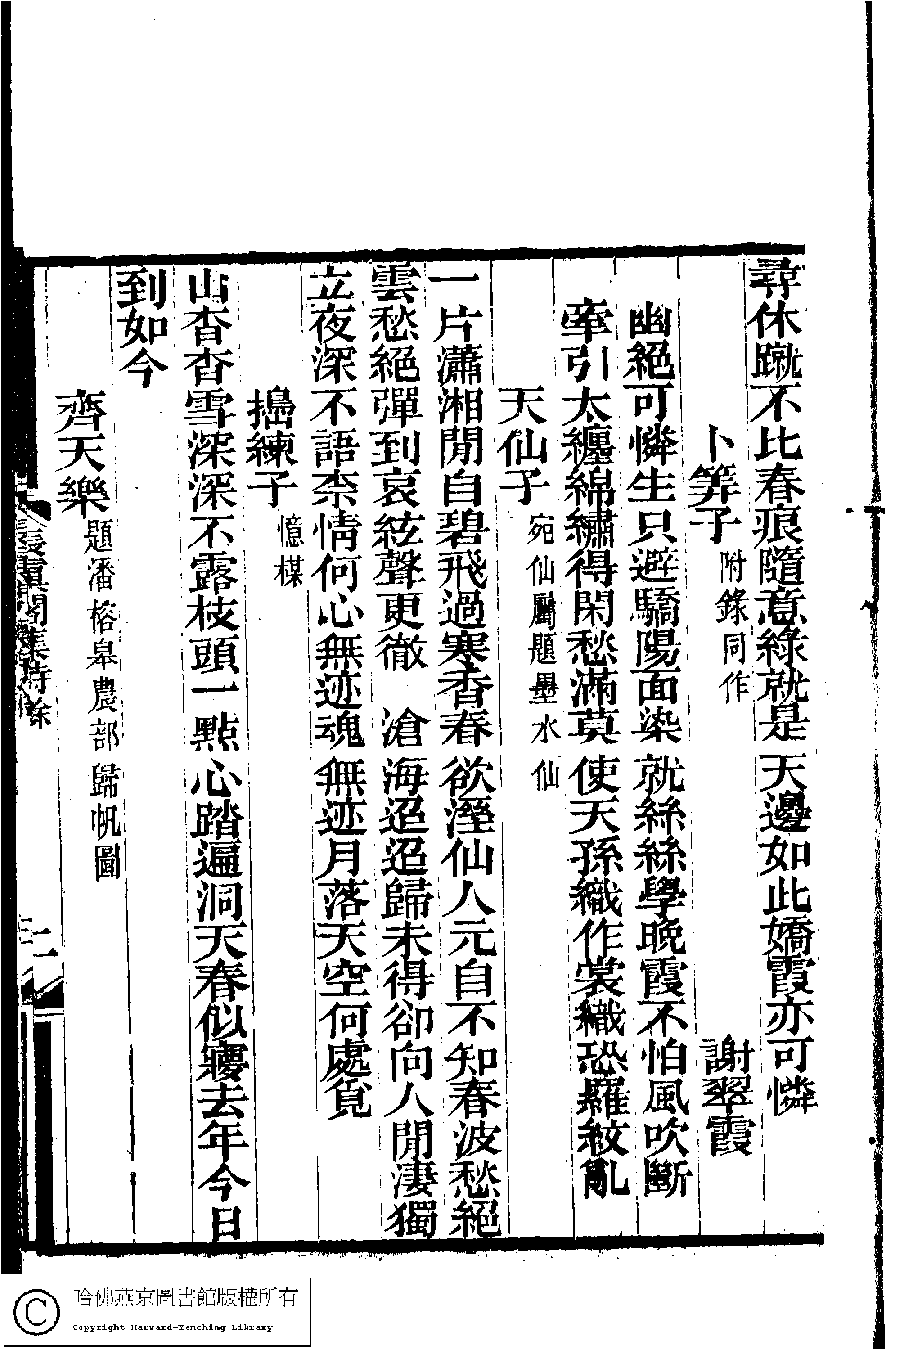 尋休蹴不比春痕隨意綠就是天邊如此嬌霞亦可憐
卜筭子附錄同作　謝翠霞
幽絕可憐生只避驕陽面染就絲絲學晚霞不怕風吹斷
牽引太纏綿繡得閑愁滿莫使天孫織作裳織恐羅紋亂
天仙子宛仙屬題墨水仙
一片瀟湘閒自碧飛過寒香春欲溼仙人元自不知春波愁絕
雲愁絕彈到哀絃聲更徹　滄海迢迢歸未得卻向人閒淒獨
立夜深不語柰情何心無迹魂無迹月落天空何處覓
搗練子憶楳
山杳杳雪深深不露枝頭一點心踏遍洞天春似寱去年今日
到如今
齊天樂題潘榕皋農部歸帆圖
長真閣集詩餘
二
哈佛燕京圖書館版權所有
Copyright Harvard-Yenching Library